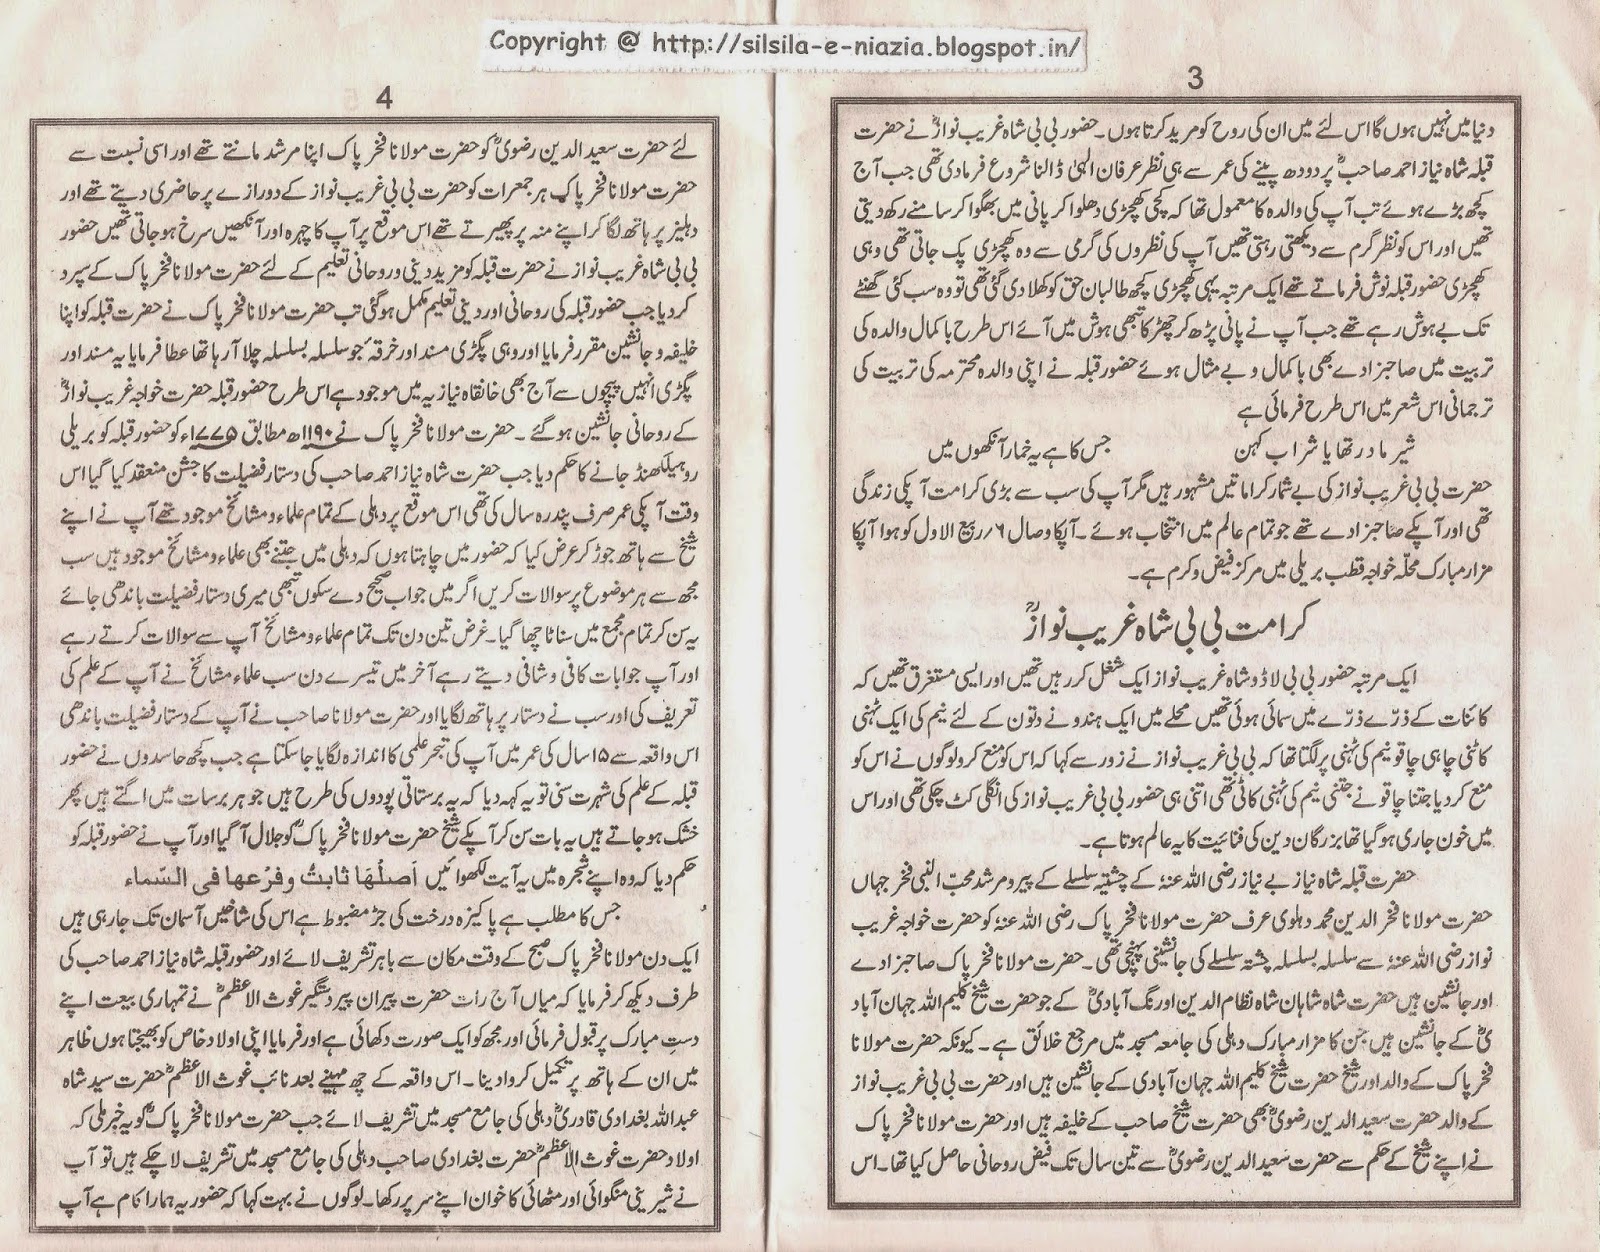 Copyright @ http://silsila-e-niazia.blogspot.in/
3
دنیا میں نہیں ہوں گا اس لئے میں ان کی روح کو مرید کرتا ہوں۔ حضور بی بی شاہ غریب نوازؒ نے حضرت
قبلہ شاہ نیاز احمد صاحبؒ پر دودھ پینے کی عمر سے ہی نظر عرفان الٰہی ڈالنا شروع فرما دی تھی جب آپ
کچھ بڑے ہوئے تب آپ کی والدہ کا معمول تھا کہ کچی کھچڑی دھلوا کر پانی میں بھگوا کر سامنے رکھ دیتی
تھیں اور اس کو نظر گرم سے دیکھتی رہتی تھیں آپ کی نظروں کی گرمی سے وہ کھچڑی پک جاتی تھی وہی
کھچڑی حضور قبلہ نوش فرماتے تھے ایک مرتبہ یہی کھچڑی کچھ طالبان حق کو کھلا دی گئی تھی تو وہ سب کئی گھنٹے
تک بے ہوش رہے تھے جب آپ نے پانی پڑھ کر چھڑکا تبھی ہوش میں آئے اس طرح با کمال والدہ کی
تربیت میں صاحبزادے بھی با کمال و بے مثال ہوئے حضور قبلہ نے اپنی والدہ محترمہ کی تربیت کی
ترجمانی اس شعر میں اس طرح فرمائی ہے
شیر مادر تھا یا شراب کہن جس کا ہے یہ خمار آنکھوں میں
حضرت بی بی غریب نواز کی بے شمار کراماتیں مشہور ہیں مگر آپ کی سب سے بڑی کرامت آپکی زندگی
تھی اور آپکے صاحبزادے تھے جو تمام عالم میں انتخاب ہوئے۔ آپکا وصال ۶؍ ربیع الاول کو ہوا آپکا
مزار مبارک محلّہ خواجہ قطب بریلی میں مرکز فیض و کرم ہے۔
کرامت بی بی شاہ غریب نوازؒ
ایک مرتبہ حضور بی بی لاڈو شاہ غریب نواز ایک شغل کر رہیں تھیں اور ایسی مستغرق تھیں کہ
کائنات کے ذرّے ذرّے میں سمائی ہوئی تھیں محلے میں ایک ہندو نے دتون کے لئے نیم کی ایک ٹہنی
کاٹنی چاہی چاقو نیم کی ٹہنی پر لگتا تھا کہ بی بی غریب نواز نے زور سے کہا کہ اس کو منع کرو لوگوں نے اس کو
منع کر دیا جتنا چاقو نے جتنی نیم کی ٹہنی کاٹی تھی اتنی ہی حضور بی بی غریب نواز کی انگلی کٹ چکی تھی اور اس
میں خون جاری ہو گیا تھا بزرگان دین کی فنائیت کا یہ عالم ہوتا ہے۔
حضرت قبلہ شاہ نیاز بے نیاز رضی اللہ عنہٗ کے چشتیہ سلسلے کے پیر و مرشد محبّ النبی فخر جہاں
حضرت مولانا فخر الدین محمد دہلوی عرف حضرت مولانا فخر پاک رضی اللہ عنہٗ کو حضرت خواجہ غریب
نواز رضی اللہ عنہٗ سے سلسلہ بسلسلہ چشتہ سلسلے کی جانشینی پہنچی تھی۔ حضرت مولانا فخر پاک صاحبزادے
اور جانشین ہیں حضرت شاہ شاہان شاہ نظام الدین اورنگ آبادیؒ کے جو حضرت شیخ کلیم اللہ جہان آباد
یؒ کے جانشین ہیں جن کا مزار مبارک دہلی کی جامعہ مسجد میں مرجع خلائق ہے۔ کیونکہ حضرت مولانا
فخر پاک کے والد اور شیخ حضرت شیخ کلیم اللہ جہان آبادی کے جانشین ہیں اور حضرت بی بی غریب نواز
کے والد حضرت سعید الدین رضویؒ بھی حضرت شیخ صاحب کے خلیفہ ہیں اور حضرت مولانا فخر پاک
نے اپنے شیخ کے حکم سے حضرت سعید الدین رضویؒ سے تین سال تک فیض روحانی حاصل کیا تھا۔ اس
4
لئے حضرت سعید الدین رضویؒ کو حضرت مولانا فخر پاک اپنا مرشد مانتے تھے اور اسی نسبت سے
حضرت مولانا فخر پاک ہر جمعرات کو حضرت بی بی غریب نواز کے دورازے پر حاضری دیتے تھے اور
دہلیز پر ہاتھ لگا کر اپنے منہ پر پھیرتے تھے اس موقع پر آپ کا چہرہ اور آنکھیں سرخ ہو جاتی تھیں حضور
بی بی شاہ غریب نواز نے حضرت قبلہ کو مزید دینی و روحانی تعلیم کے لئے حضرت مولانا فخر پاک کے سپرد
کر دیا جب حضور قبلہ کی روحانی اور دینی تعلیم مکمل ہو گئی تب حضرت مولانا فخر پاک نے حضرت قبلہ کو اپنا
خلیفہ و جانشین مقرر فرمایا اور وہی پگڑی مسند اور خرقہ جو سلسلہ بسلسلہ چلا آ رہا تھا عطا فرمایا یہ مسند اور
پگڑی انہیں پیچوں سے آج بھی خانقاہ نیازیہ میں موجود ہے اس طرح حضور قبلہ حضرت خواجہ غریب نوازؒ
کے روحانی جانشین ہو گئے۔ حضرت مولانا فخر پاک نے ۱۱۹۰ھ مطابق ۱۷۷۵ء کو حضور قبلہ کو بریلی
روہیلکھنڈ جانے کا حکم دیا جب حضرت شاہ نیاز احمد صاحب کی دستار فضیلت کا جشن منعقد کیا گیا اس
وقت آپکی عمر صرف پندرہ سال کی تھی اس موقع پر دہلی کے تمام علماء و مشائخ موجود تھے آپ نے اپنے
شیخ سے ہاتھ جوڑ کر عرض کیا کہ حضور میں چاہتا ہوں کہ دہلی میں جتنے بھی علماء و مشائخ موجود ہیں سب
مجھ سے ہر موضوع پر سوالات کریں اگر میں جواب صحیح دے سکوں تبھی میری دستار فضیلت باندھی جائے
یہ سن کر تمام مجمع میں سناٹا چھا گیا۔ غرض تین دن تک تمام علماء و مشائخ آپ سے سوالات کرتے رہے
اور آپ جوابات کافی و شافی دیتے رہے آخر میں تیسرے دن سب علماء مشائخ نے آپ کے علم کی
تعریف کی اور سب نے دستار پر ہاتھ لگایا اور حضرت مولانا صاحب نے آپ کے دستار فضیلت باندھی
اس واقعہ سے ۱۵ سال کی عمر میں آپ کی تبحر علمی کا اندازہ لگایا جا سکتا ہے جب کچھ حاسدوں نے حضور
قبلہ کے علم کی شہرت سنی تو یہ کہہ دیا کہ یہ برستاتی پودوں کی طرح ہیں جو ہر برسات میں اگتے ہیں پھر
خشک ہو جاتے ہیں یہ بات سن کر آپکے شیخ حضرت مولانا فخر پاکؒ کو جلال آ گیا اور آپ نے حضور قبلہ کو
حکم دیا کہ وہ اپنے شجرہ میں یہ آیت لکھوائیں اَصلُهَا ثابتٌ وفرْعها فی السّماء
جس کا مطلب ہے پاکیزہ درخت کی جڑ مضبوط ہے اس کی شاخیں آسمان تک جا رہی ہیں
ایک دن مولانا فخر پاک صبح کے وقت مکان سے باہر تشریف لائے اور حضور قبلہ شاہ نیاز احمد صاحب کی
طرف دیکھ کر فرمایا کہ میاں آج رات حضرت پیران پیر دستگیر غوث الاعظمؓ نے تمہاری بیعت اپنے
دستِ مبارک پر قبول فرمائی اور مجھ کو ایک صورت دکھائی ہے اور فرمایا اپنی اولاد خاص کو بھیجتا ہوں ظاہر
میں ان کے ہاتھ پر تکمیل کروا دینا۔ اس واقعہ کے چھ مہینے بعد نائب غوث الاعظمؓ حضرت سید شاہ
عبداللہ بغدادی قادریؒ دہلی کی جامع مسجد میں تشریف لائے جب حضرت مولانا فخر پاکؒ کو یہ خبر ملی کہ
اولاد حضرت غوث الاعظمؓ حضرت بغدادی صاحب دہلی کی جامع مسجد میں تشریف لا چکے ہیں تو آپ
نے شیرینی منگوائی اور مٹھائی کا خوان اپنے سر پر رکھا۔ لوگوں نے بہت کہا کہ حضور یہ ہمارا کام ہے آپ